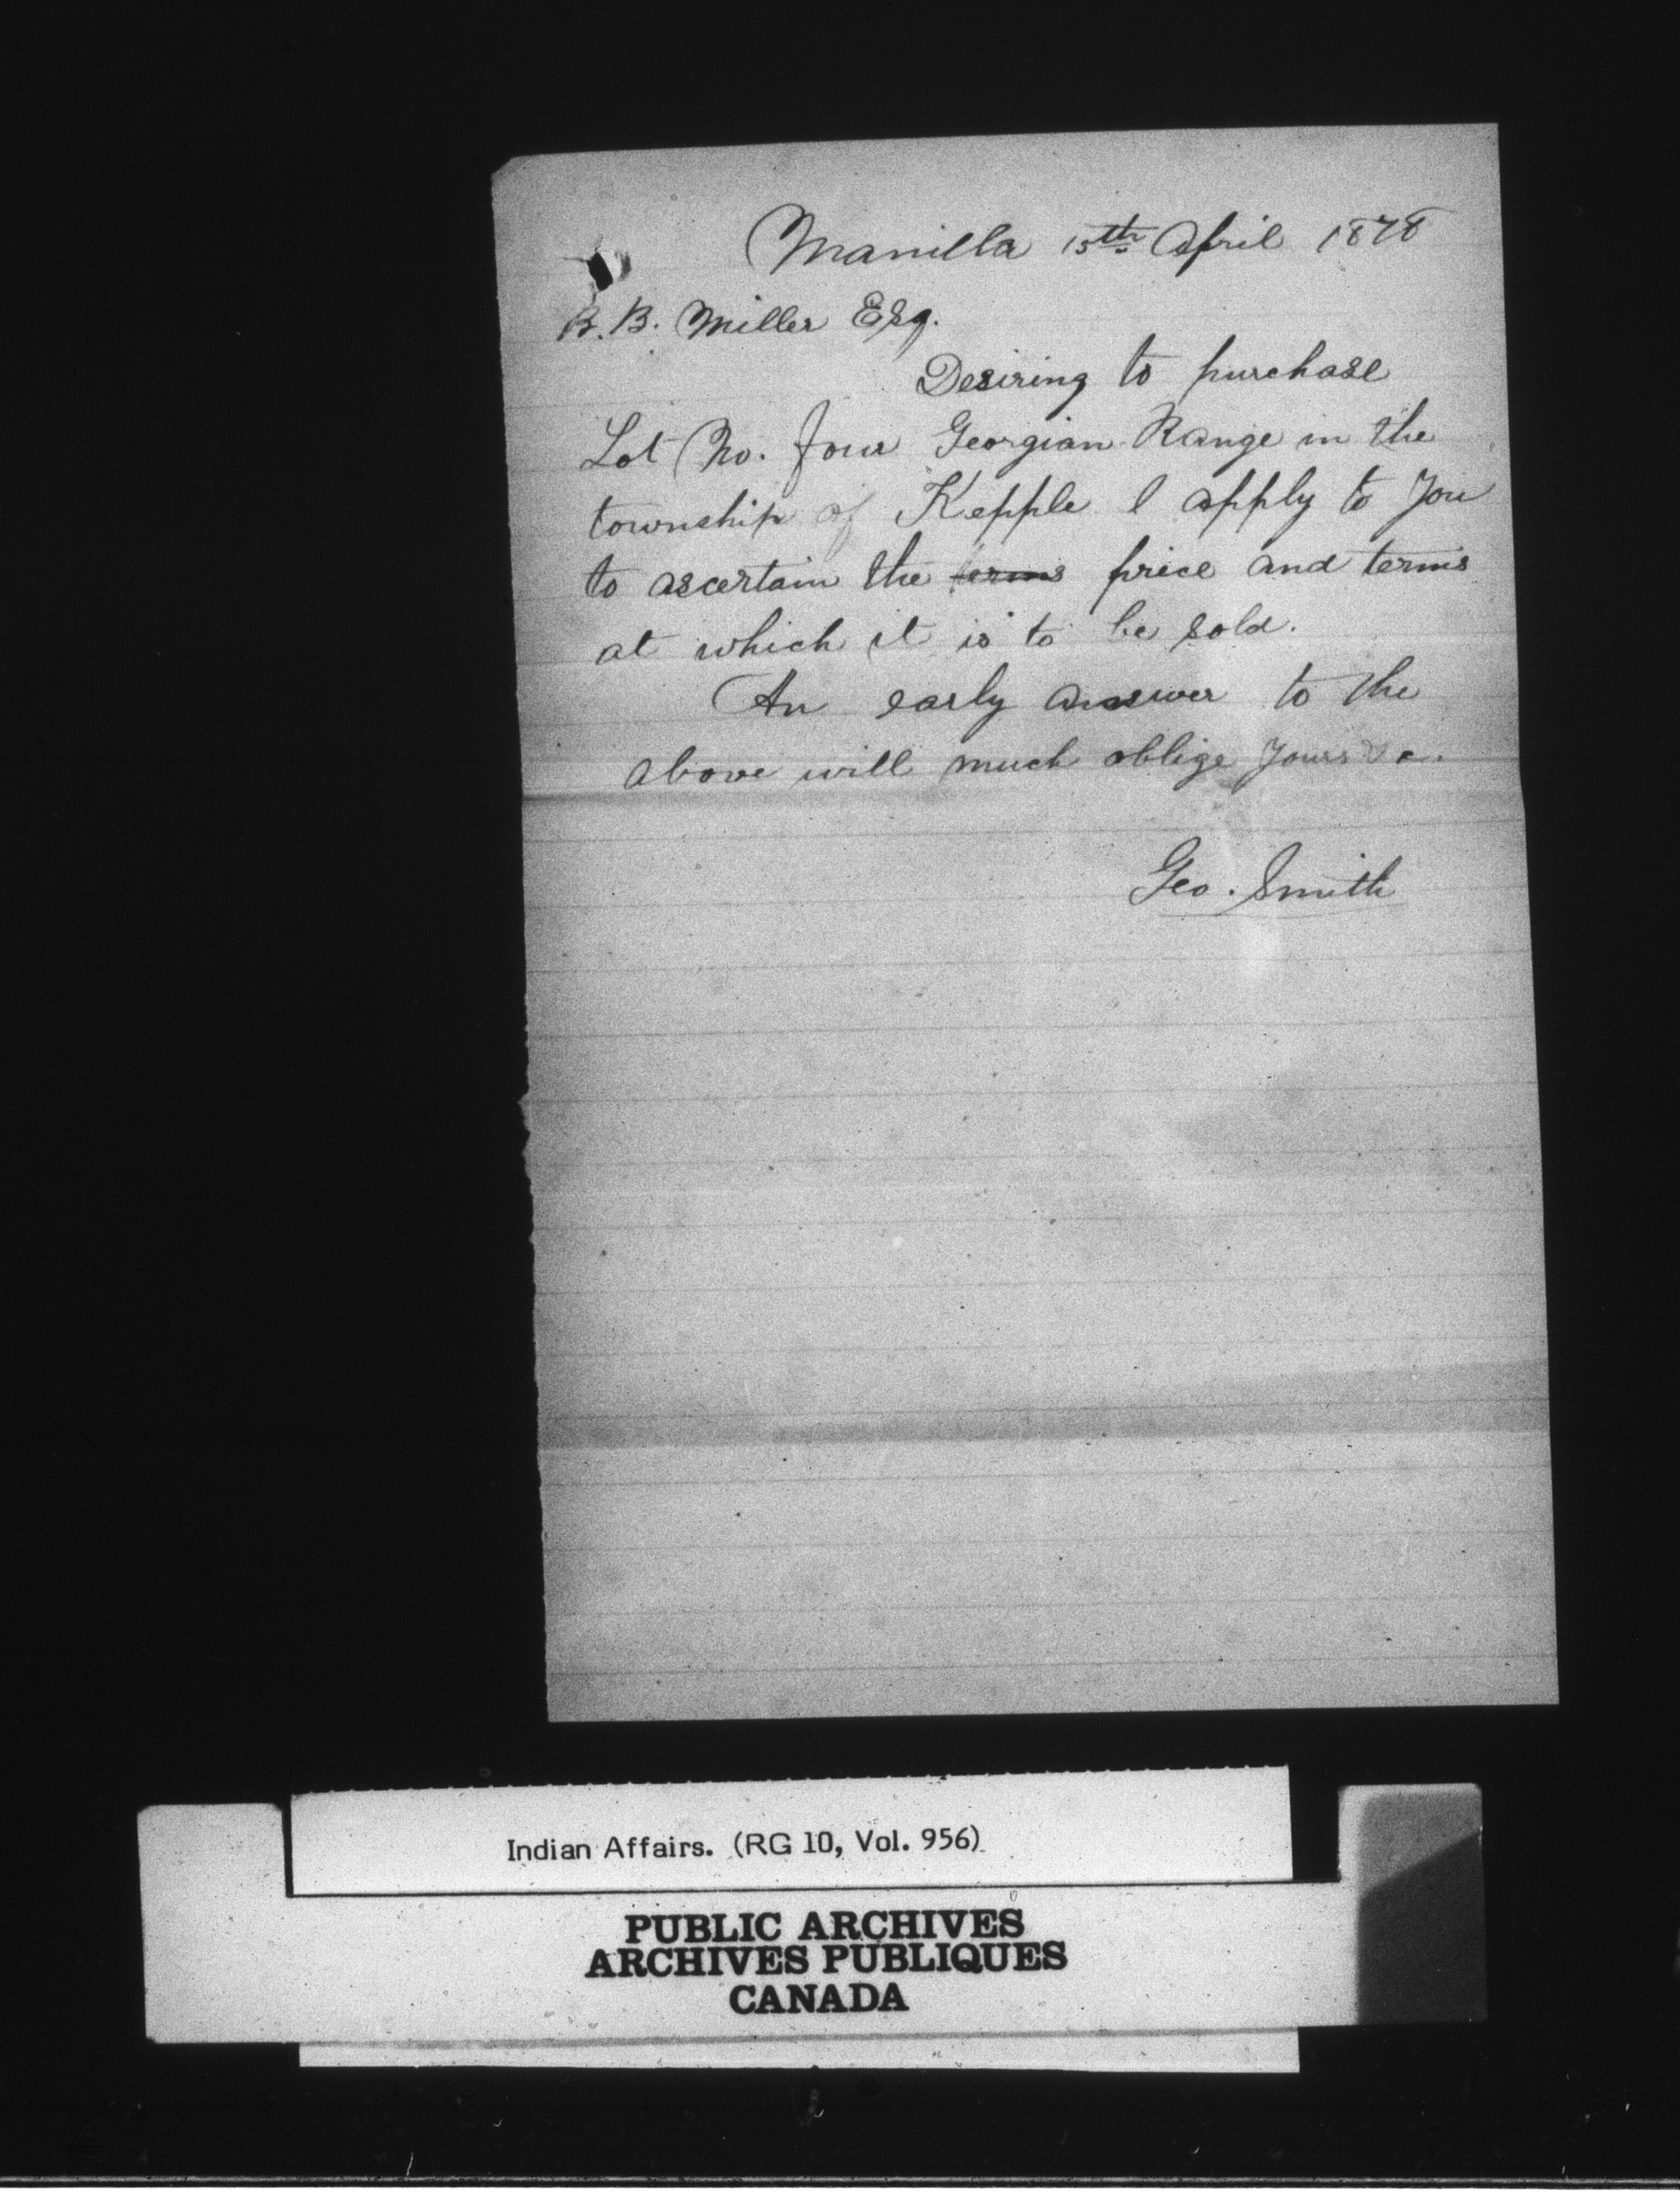 Manilla 15th April 1878
B. B. Miller Esq.
Desiring to purchase
Lot No. four Georgian Range in the
township of Kepple I apply to you
to ascertain the terms price and terms
at which it is to be sold.
An early answer to the
above will much oblige Yours &c.
Geo. Smith
Indian Affairs. (RG 10, Vol. 956)
PUBLIC ARCHIVES
ARCHIVES PUBLIQUES
CANADA